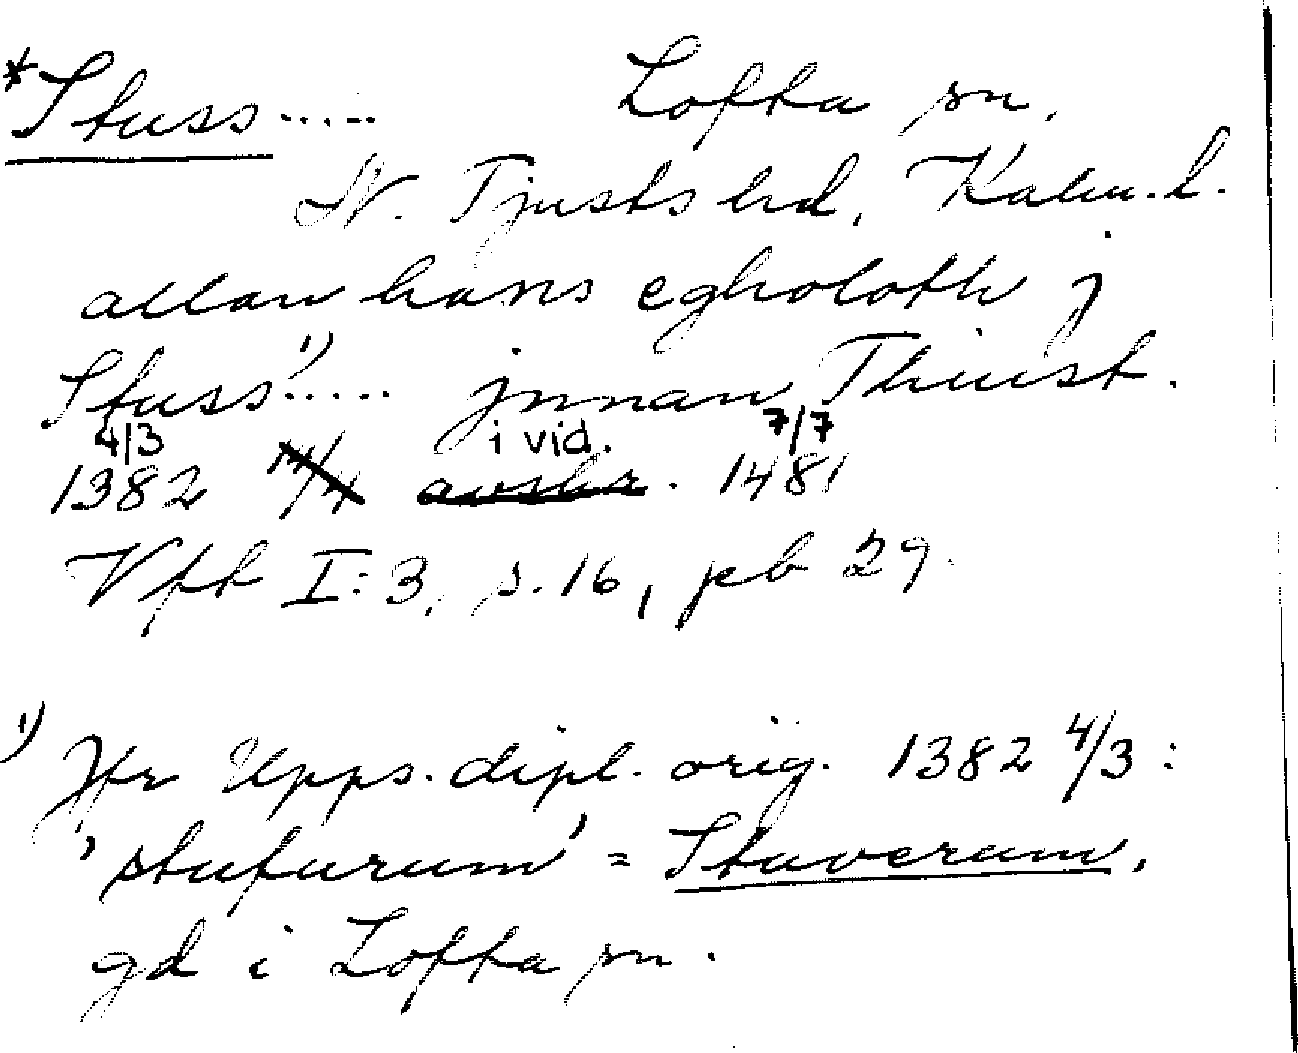 *Stuss..... Lofta sn.
N. Tjusts hd, Kalm. l.
allan hans egholoth j
Stuss¹⁾..... jnnan Thiust.
4/3 i vid. 7/7
1382 14/4 avskr. 1481
Vfk I:3, s. 16, peb 29.
¹⁾ Jfr Upps. dipl. orig. 1382 4/3:
'stufurum' = Stuverum,
gd i Lofta sn.